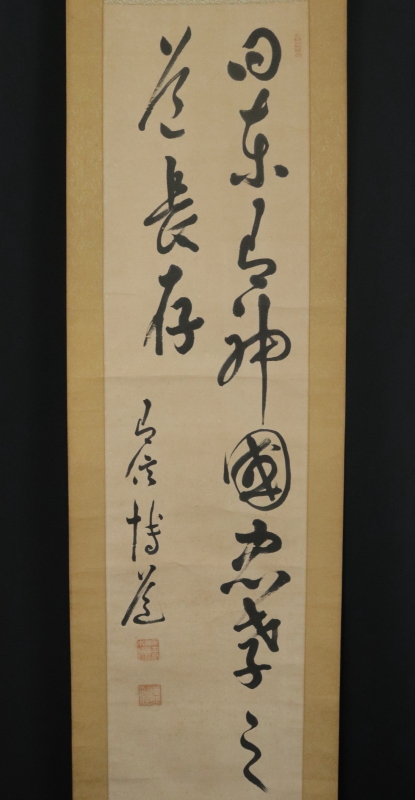 日東有神國忠孝之
道長存
有信博道